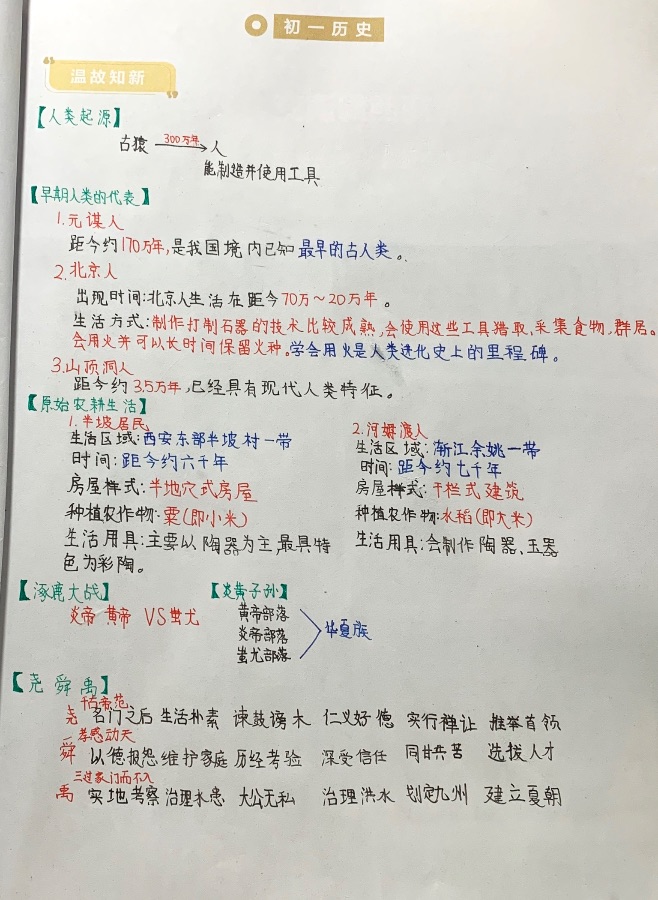 初一历史
温故知新
【人类起源】
古猿 300万年 人
能制造并使用工具
【早期人类的代表】
1.元谋人
距今约170万年,是我国境内已知最早的古人类。
2.北京人
出现时间:北京人生活在距今70万~20万年。
生活方式:制作打制石器的技术比较成熟,会使用这些工具猎取、采集食物,群居。
会用火并可以长时间保留火种。学会用火是人类进化史上的里程碑。
3.山顶洞人
距今约3.5万年,已经具有现代人类特征。
【原始农耕生活】
1.半坡居民
生活区域:西安东部半坡村一带
时间:距今约六千年
房屋样式:半地穴式房屋
种植农作物:粟(即小米)
生活用具:主要以陶器为主,最具特
色为彩陶。
2.河姆渡人
生活区域:浙江余姚一带
时间:距今约七千年
房屋样式:干栏式建筑
种植农作物:水稻(即大米)
生活用具:会制作陶器、玉器
【涿鹿大战】
炎帝 黄帝 VS蚩尤
【炎黄子孙】
黄帝部落
炎帝部落
蚩尤部落
华夏族
【尧舜禹】
千古帝范
尧 名门之后 生活朴素 谏鼓谤木 仁义好德 实行禅让 推举首领
孝感动天
舜 以德报怨 维护家庭 历经考验 深受信任 同甘共苦 选拔人才
三过家门而不入
禹 实地考察 治理水患 大公无私 治理洪水 划定九州 建立夏朝